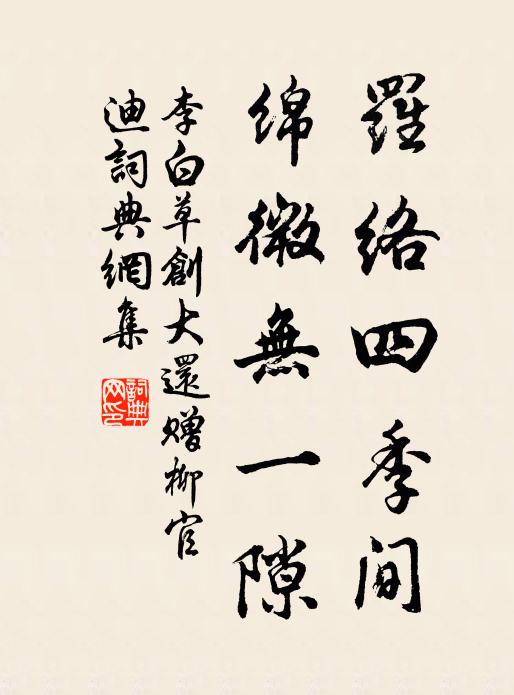 羅絡四季間
綿微無一隙
李白草創大還赠柳官
迪詞典網集
詞典
网印